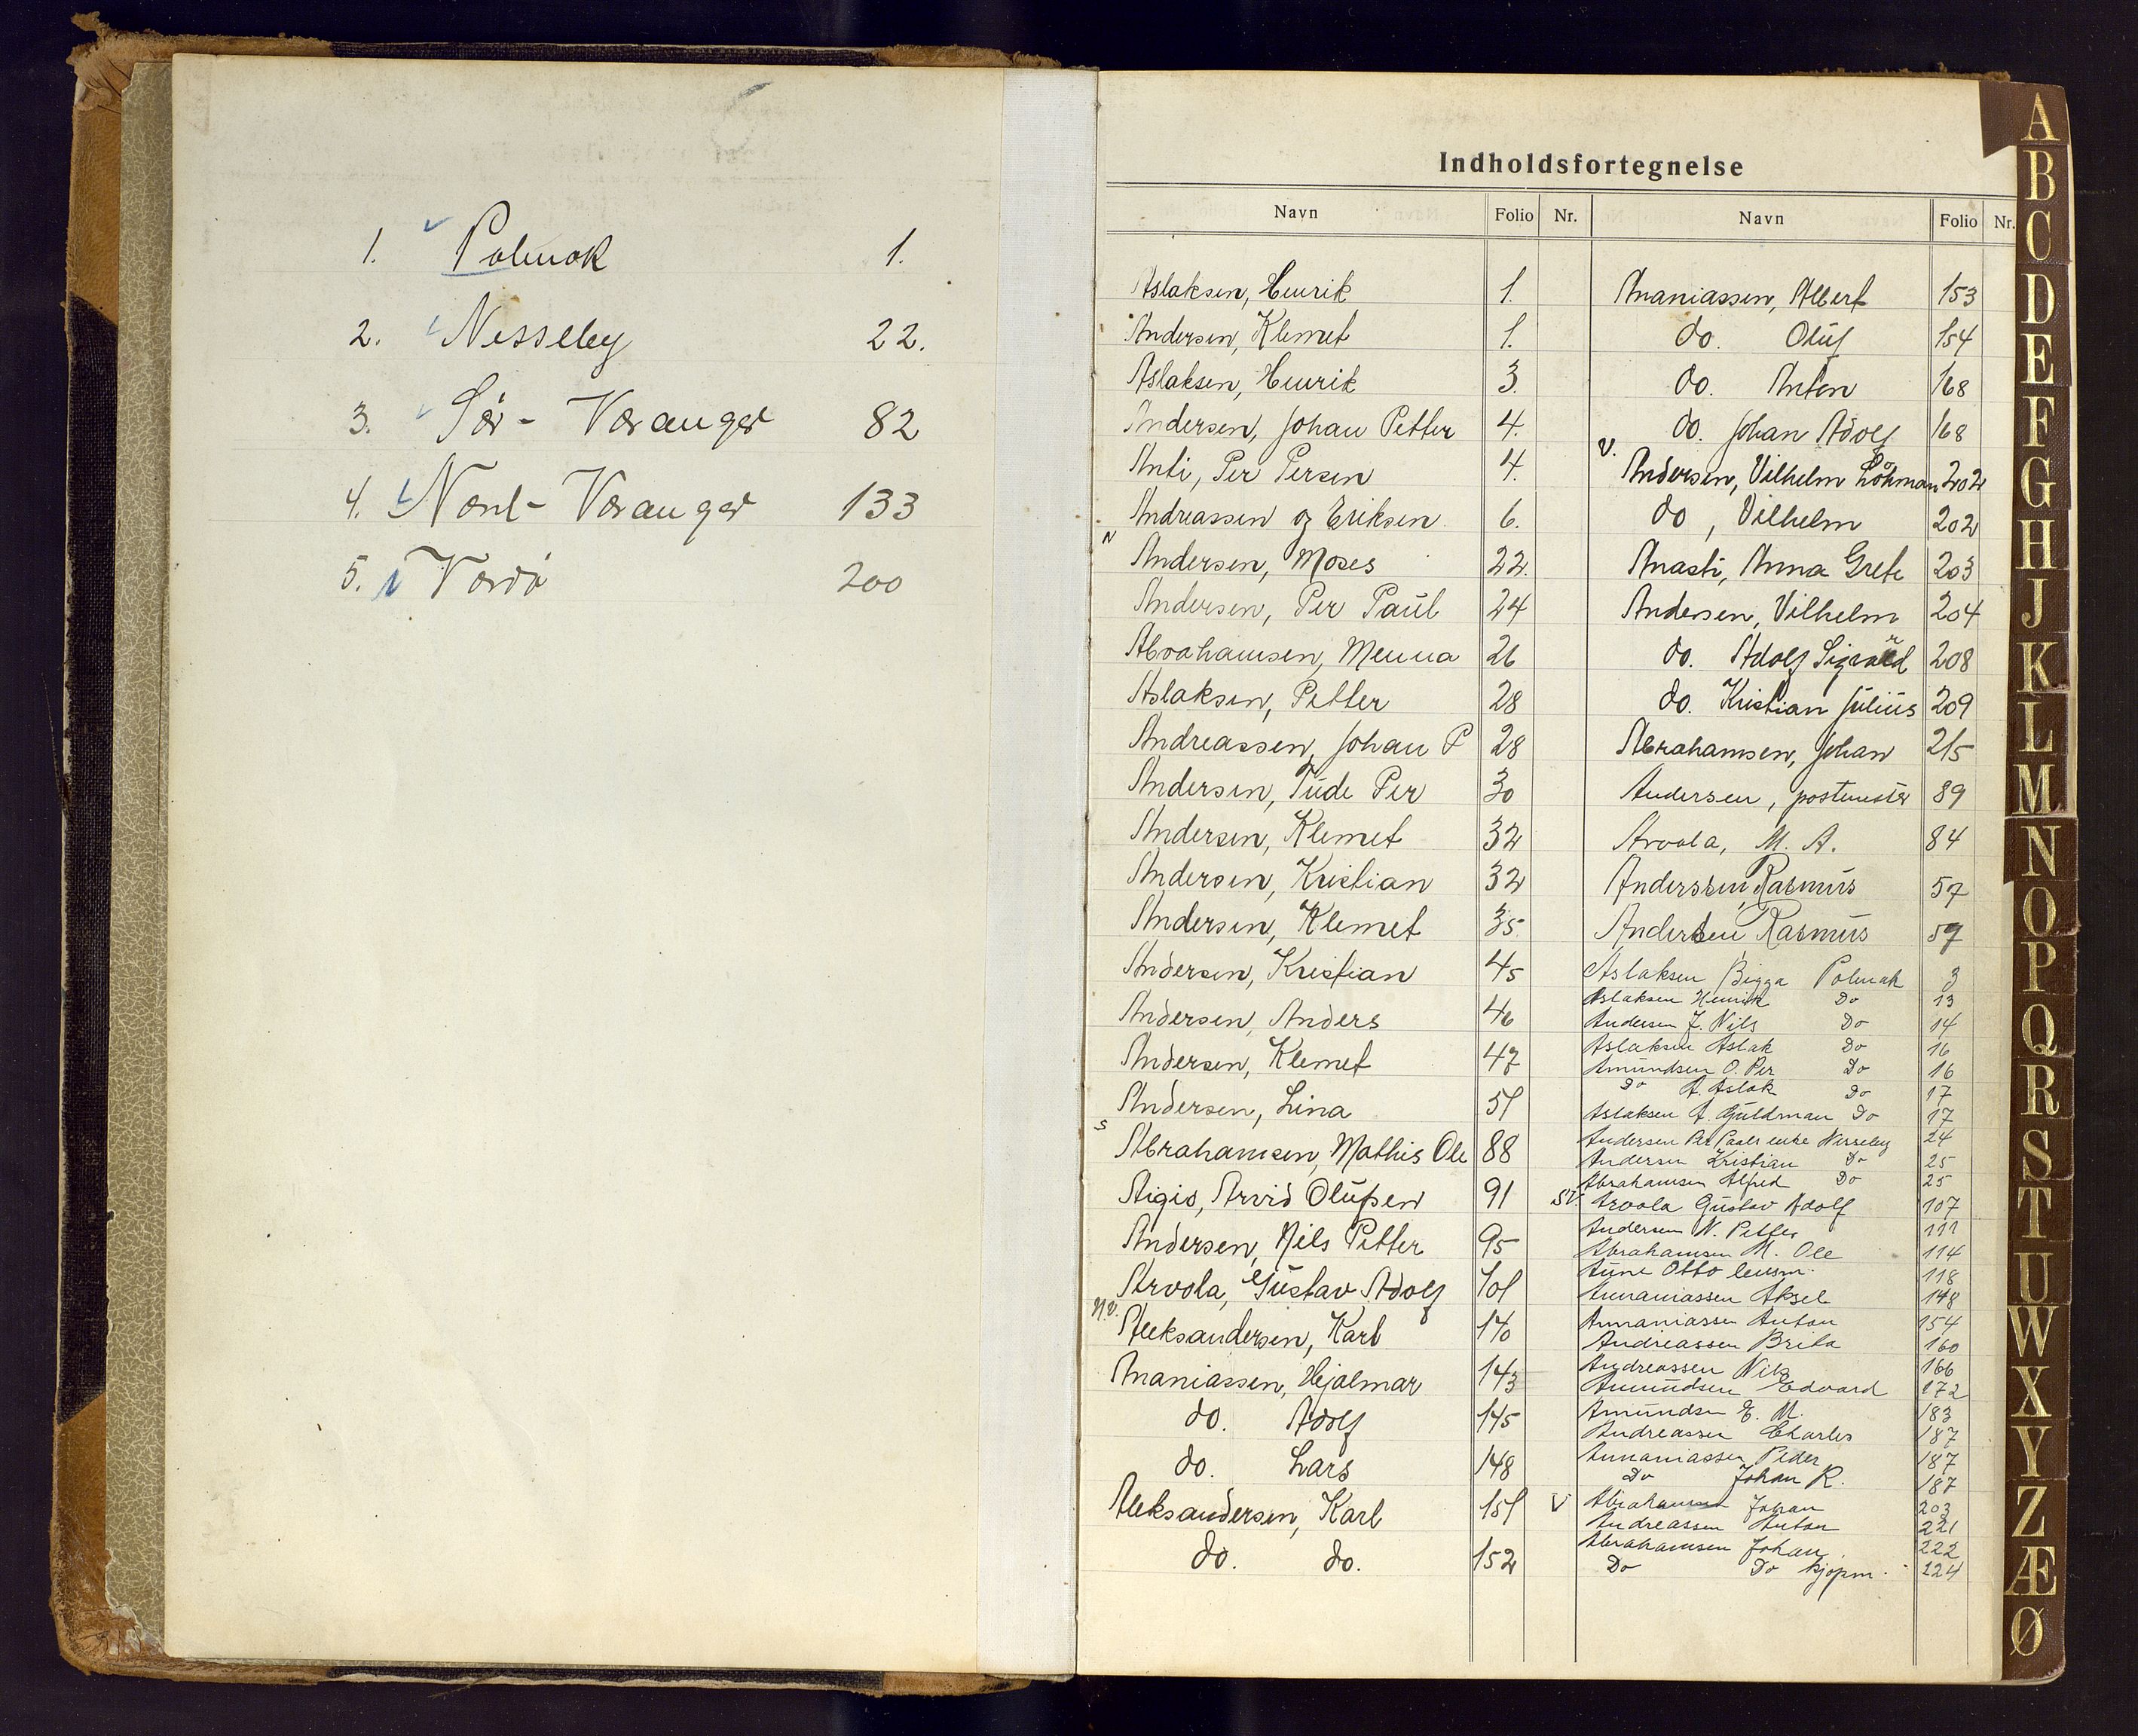 1. Polmak 1.
2. Nesseby 22.
3. Sør-Varanger 82
4. Nord-Varanger 133
5. Vardø 200
Indholdsfortegnelse
Navn Folio Nr.
Aslaksen, Henrik 1.
Andersen, Klemet 1.
Aslaksen, Henrik 3.
Andersen, Johan Petter 4.
Anti, Per Persen 4.
Andreassen og Eriksen 6.
N
Andersen, Moses 22.
Andersen, Per Paul 24
Abrahamsen, Menna 26
Aslaksen, Petter 28
Andreassen, Johan P 28
Andersen, Tude Per 30
Andersen, Klemet 32
Andersen, Kristian 32
Andersen, Klemet 35
Andersen, Kristian 45
Andersen, Anders 46
Andersen, Klemet 47
Andersen, Lina 51
S
Abrahamsen, Mathis Ole 88
Aigis, Arvid Olufsen 91
Andersen, Nils Petter 95
Arvola, Gustav Adolf 101
N.V.
Aleksandersen, Karl 140
Ananiassen, Hjalmar 143
do. Adolf 145
do. Lars 148
Aleksandersen, Karl 151
do. do. 152
Navn Folio Nr.
Ananiassen, Albert 153
do. Oluf 154
do. Anton 168
do. Johan Adolf 168
V.
Andersen, Vilhelm Löhman 202
do, Vilhelm 202
Anasti, Anna Grete 203
Andersen, Vilhelm 204
do. Adolf Sigvard 208
do. Kristian Julius 209
Abrahamsen, Johan 215
Andersen, postmester 89
Arvola, M. A. 84
Anderssen, Rasmus 57
Andersen Rasmus 57
Aslaksen Bigga Polmak 3
Aslaksen Henrik Do 13
Andersen J. Nils Do 14
Aslaksen Aslak Do 16
Amundsen O. Per Do 16
Do A. Aslak Do 17
Aslaksen A. Guldman Do 17
Andersen Per Pauls enke Nesseby 24
Andersen Kristian Do 25
Abrahamsen Alfred Do 25
S.V. Arvola Gustav Adolf 107
Andersen N. Petter 111
Abrahamsen M. Ole 114
Aune Otto lensm. 118
Annaniassen Aksel 148
Annaniassen Anton 154
Andreassen Brita 160
Andreassen Nils 166
Amundsen Edvard 172
Amundsen E. M. 183
Andreassen Charles 187
Annaniassen Peder 187
Do Johan R. 187
V Abrahamsen Johan 203
Andreassen Anton 221
Abrahamsen Johan 222
Do Do kjøpm. 224
A
B
C
D
E
F
G
H
J
K
L
M
N
O
P
Q
R
S
T
U
W
X
Y
Z
Æ
Ø